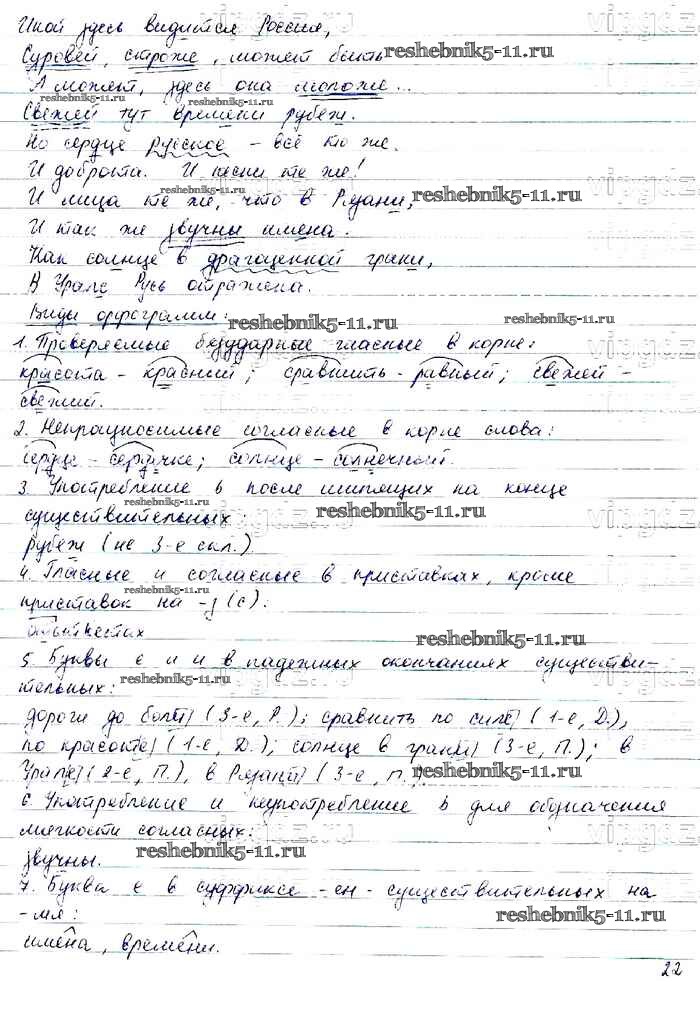 Иной здесь видится Россия,
Суровей, строже, может быть
reshebnik5-11.ru
А может, здесь она моложе...
reshebnik5-11.ru reshebnik5-11.ru
Свежей тут времени рубеж.
Но сердце русское - всё то же.
И доброта. И песни те же!
И лица те же, что в Рязани,
reshebnik5-11.ru reshebnik5-11.ru
И так же звучны имена.
Как солнце в драгоценной грани,
В Урале Русь отражена.
Виды орфограмм:
reshebnik5-11.ru
1. Проверяемые безударные гласные в корне:
красота - красный; сравнить - равный; свежей -
свежий.
2. Непроизносимые согласные в корне слова:
сердце - сердечко; солнце - солнечный.
3. Употребление ь после шипящих на конце
reshebnik5-11.ru reshebnik5-11.ru
существительных:
рубеж (не 3-е скл.)
4. Гласные и согласные в приставках, кроме
приставок на -з (с):
reshebnik5-11.ru
reshebnik5-11.ru
5. Буквы е и и в падежных окончаниях существи-
reshebnik5-11.ru
тельных:
дороги до (3-е, Р.); сравнить по силе (1-е, Д.),
по красоте (1-е, Д.); солнце в грани (3-е, П.); в
Урале (2-е, П.), в Рязани (3-е, П.)
reshebnik5-11.ru
6. Употребление и неупотребление ь для обозначения
мягкости согласных:
reshebnik5-11.ru
звучны.
7. Буква е в суффиксе -ен- существительных на
-мя:
reshebnik5-11.ru
имена, времени.
22